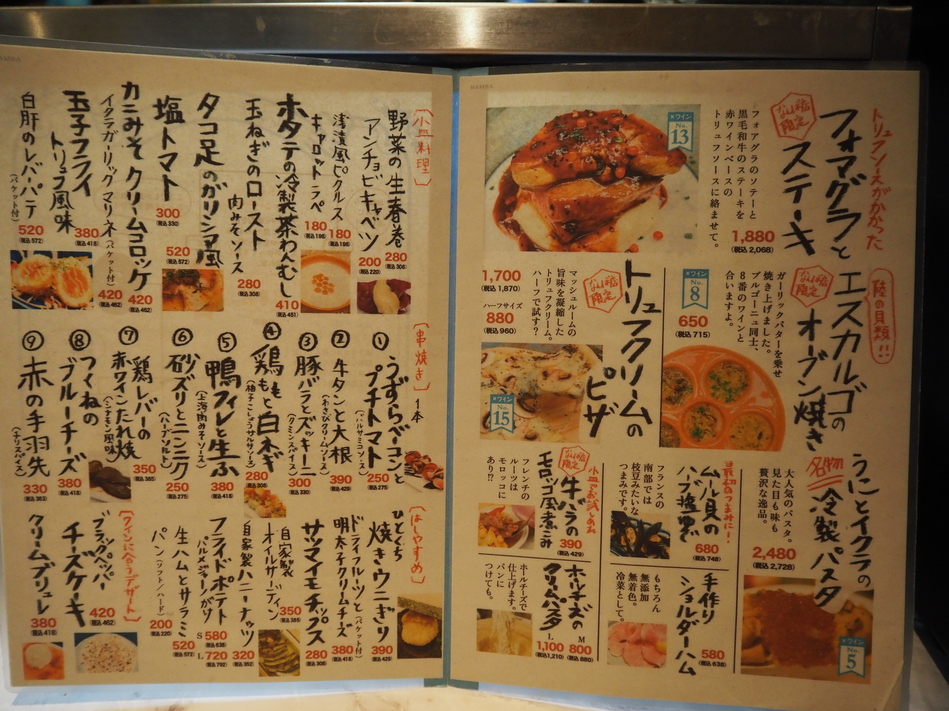 トリュフソースがかかった
フォアグラと
ステーキ
なんば店
限定
フォアグラのソテーと
黒毛和牛のステーキを
赤ワインベースの
トリュフソースに絡ませて。
1,880
(税込 2,068)
×ワイン
No.
13
陸の貝類!!
エスカルゴの
オーヴン焼き
なんば店
限定
ガーリックバターを乗せ
焼き上げました。
ブルゴーニュ同士、
8番のワインと
合いますよ。
×ワイン
No.
8
650
(税込 715)
トリュフクリームの
ピザ
なんば店
限定
マッシュルームの
旨味を凝縮した
トリュフクリーム。
ハーフで試す?
1,700
(税込 1,870)
ハーフサイズ
880
(税込 960)
×ワイン
No.
15
うにとイクラの
冷製パスタ
名物
大人気のパスタ。
見た目も味も
贅沢な逸品。
2,480
(税込 2,728)
×ワイン
No.
5
最初のつまみに!
ムール貝の
ハーブ塩茹で
フランスの
南部では
枝豆みたいな
つまみです。
680
(税込 748)
小皿でお試しのお
牛バラの
モロッコ風煮こみ
なんば店
限定
フレンチの
ルーツは
モロッコに
あり!?
390
(税込 429)
手作り
ショルダーハム
もちろん
無添加
無着色。
冷菜として。
580
(税込 638)
ホールチーズの
クリームパスタ
ホールチーズで
仕上げます。
パンに
つけても。
M
800
(税込 880)
L
1,100
(税込1,210)
小皿料理
野菜の生春巻
280
(税込 308)
アンチョビキャベツ
200
(税込 220)
浅漬風ピクルス
180
(税込 198)
キャロットラペ
180
(税込 198)
ホタテの冷製茶わんむし
410
(税込 451)
玉ねぎのロースト
肉みそソース
280
(税込 308)
タコ足のガリシア風
520
(税込 572)
塩トマト
300
(税込 330)
カニみそクリームコロッケ
420
(税込 462)
イタガーリックマリネ(バケット付)
420
(税込 462)
玉子フライ
トリュフ風味
380
(税込 418)
白肝のレバーパテ
(バケット付)
520
(税込 572)
串焼き 1本
①うずらベーコンと
プチトマト
(バルサミコソース)
250
(税込 275)
②牛タンと大根
(わさびクリームソース)
390
(税込 429)
③豚バラとズッキーニ
(クミンスパイス)
300
(税込 330)
④鶏ももと白ネギ
(柚子こしょうサルサソース)
280
(税込 308)
⑤鴨フィレと生ふ
(上海肉みそソース)
380
(税込 418)
⑥砂ズリとニンニク
(ハーブソルト)
250
(税込 275)
⑦鶏レバーの
赤ワインたれ焼
(シナモン風味)
350
(税込 385)
⑧つくねの
ブルーチーズ
380
(税込 418)
⑨赤の手羽先
(チリスパイス)
330
(税込 363)
はしやすめ
ひとくち
焼きウニぎり
390
(税込 429)
ドライフルーツと(バケット付)
明太子クリームチーズ
380
(税込 418)
サツマイモチップス
280
(税込 308)
自家製
オイルサーディン
350
(税込 385)
自家製ハニーナッツ
320
(税込 352)
フライドポテト
パルメジャーノがけ
S 580
(税込 638)
L 720
(税込 792)
生ハムとサラミ
520
(税込 572)
パン(ソフト/ハード)
200
(税込 220)
ワインに合うデザート
ブラックペッパー
チーズケーキ
420
(税込 462)
クリームブリュレ
380
(税込 418)